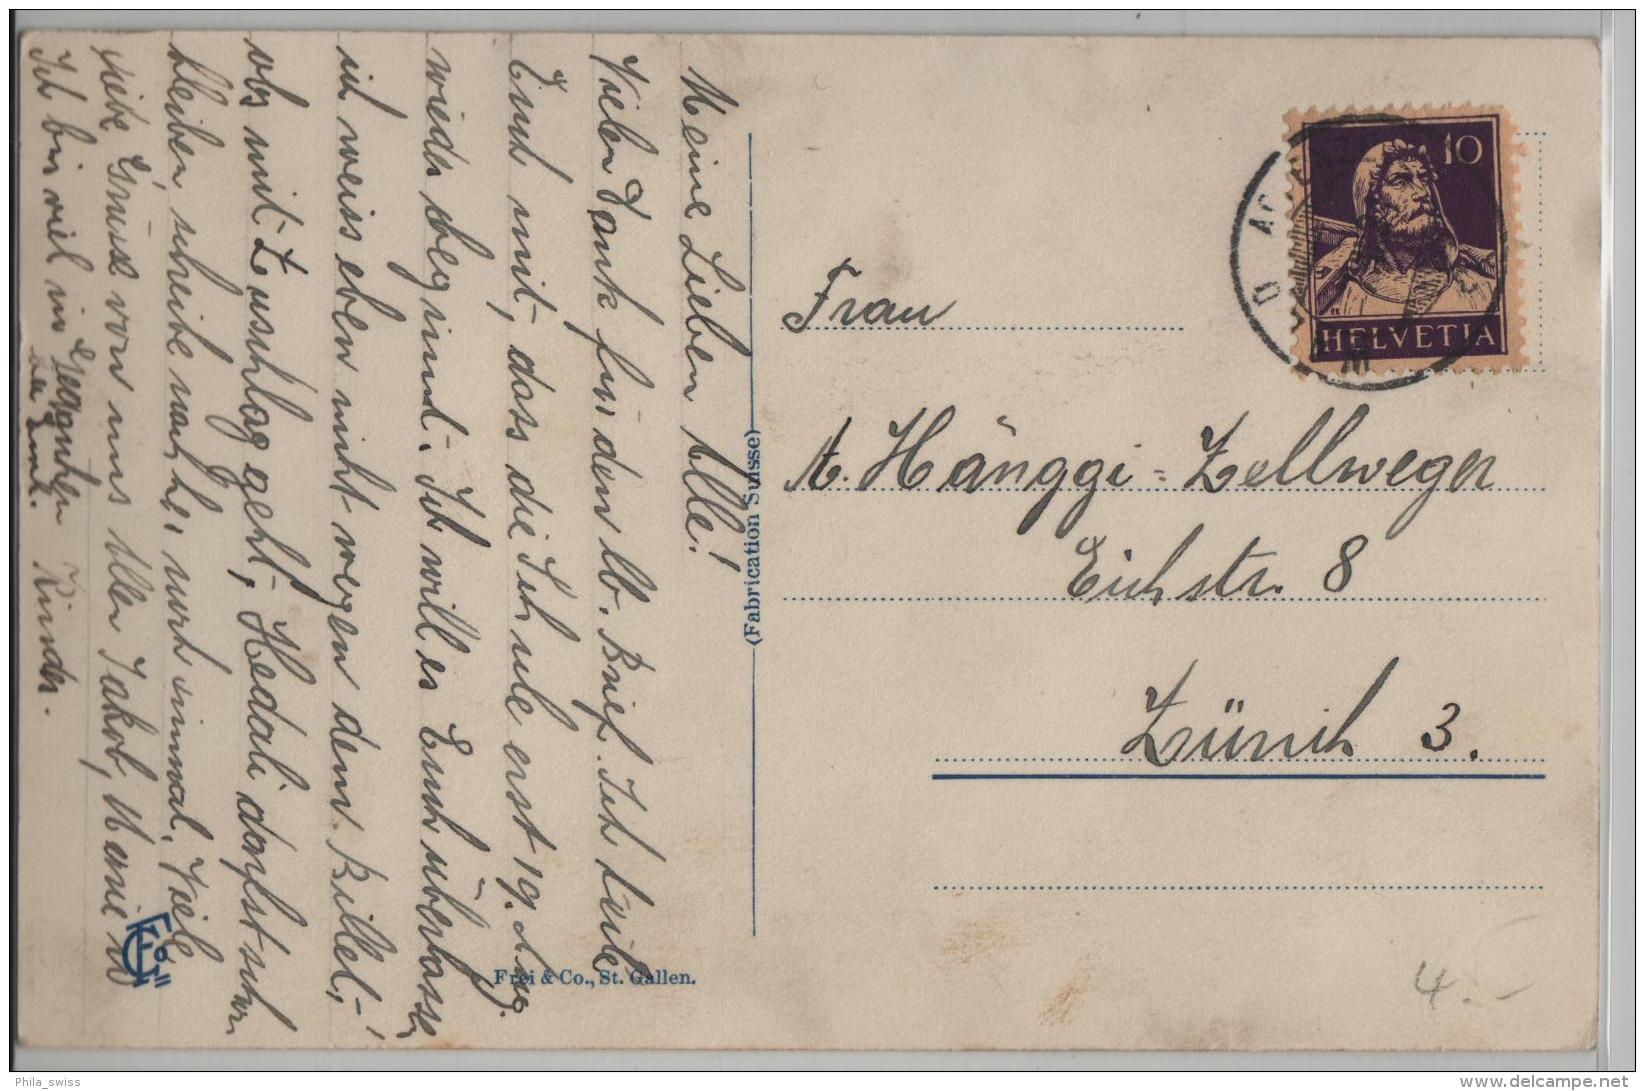 Meine Lieben Alle!
Vielen Dank für den lb. Brief. Ich teile
Euch mit, dass die Schule erst 19. Aug.
wieder beginnt. Ich will es Euch überlassen
ich weiss eben nicht wegen dem Billet,
obs mit Zuschlag geht, Hedali darfst schon
bleiben, schreibe vorher noch einmal. Viele
liebe Grüsse von uns Allen Jakob, Marie u
Ich bin viel in Gedanken Kinder.
bei Euch.
(Fabrication Suisse)
Frei & Co., St. Gallen.
10
HELVETIA
Frau
A. Hänggi-Zellweger
Eichstr. 8
Zürich 3.
4.-
Phila_swiss
www.delcampe.net